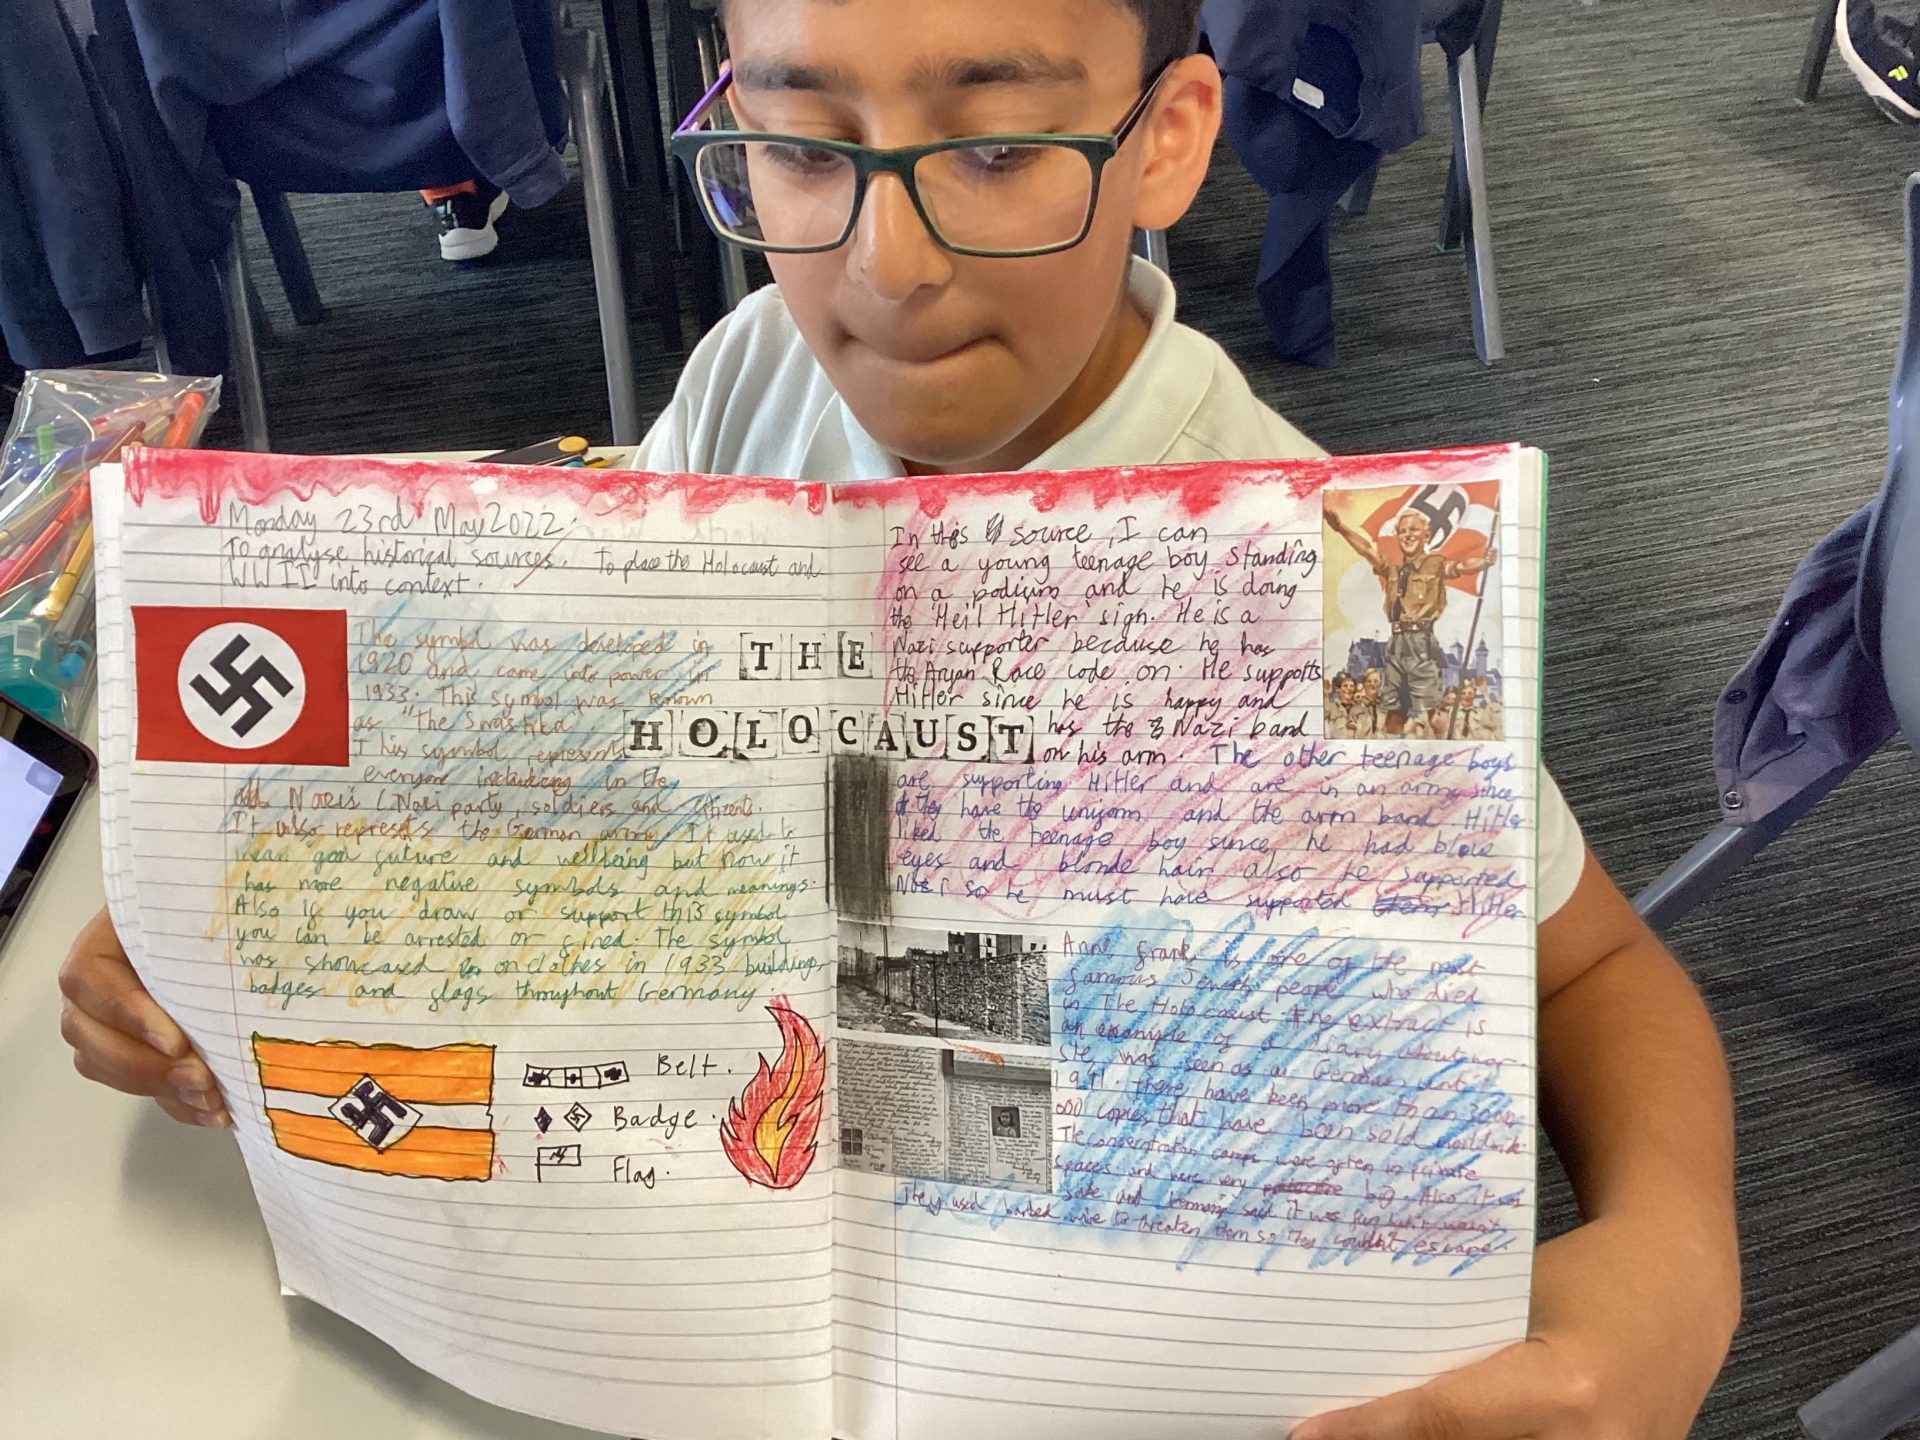 Monday 23rd May 2022.
To analyse historical sources. To place the Holocaust and
WW II into context.
The symbol was developed in
1920 and came into power in
1933. This symbol was known
as "The Swastika"
This symbol represents
everyone including in the
all Nazis (Nazi party, soldiers and
It also represents the German army. It used to
mean good future and wellbeing but now it
has more negative symbols and meanings.
Also if you draw or support this symbol
you can be arrested or fined. The symbol
was showcased on clothes in 1933 buildings,
badges and flags throughout Germany.
Belt.
Badge.
Flag.
THE
HOLOCAUST
In this source, I can
see a young teenage boy standing
on a podium and he is doing
the 'Heil Hitler' sign. He is a
Nazi supporter because he has
the Aryan Race code on. He supports
Hitler since he is happy and
has the Nazi band
on his arm. The other teenage boys
are supporting Hitler and are in an army since
they have the uniform and the arm band. Hitler
liked the teenage boy since he had blue
eyes and blonde hair also he supported
Nazi so he must have supported Hitler
Anne frank is one of the most
famous Jewish people who died
in The Holocaust. The extract is
an example of a diary about war.
She was seen as a German until
1941. There have been more than 30 000
000 copies that have been sold worldwide.
The concentration camps were often in private
spaces and were very big. Also it was
safe and Germans said it was fun but it wasn't.
They used barbed wire to threaten them so they couldn't escape.